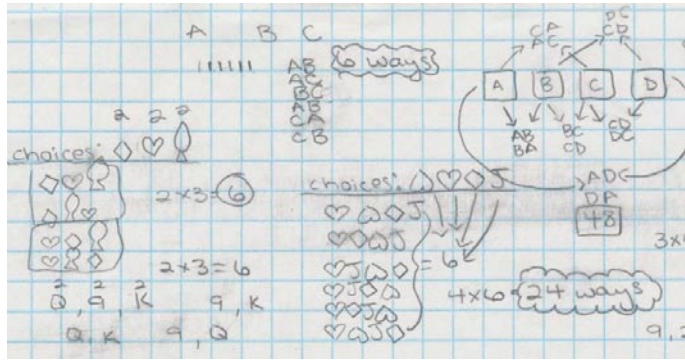 A B C
AB
AC
BC
AB
CA
CB
6 ways
CA
AC
DC
CD
A B C D
AB
BA
BC
CD
CD
DC
2 2 2
choices:
2x3=6
2x3=6
2 2 2
Q, 9, K 9, K
Q, K 9, Q
choices: J
J
J
J
J
J
J
= 6
4x6 = 24 ways
ADC
DA
48
3x
9,